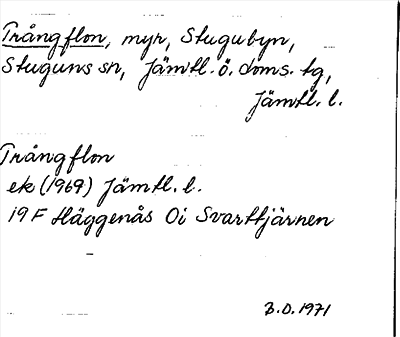 Trångflon, myr, Stugubyn,
Stuguns sn, Jämtl. ö. doms. tg,
Jämtl. l.
Trångflon
ek (1969) Jämtl. l.
19 F Häggenås Oi Svarttjärnen
B.O. 1971